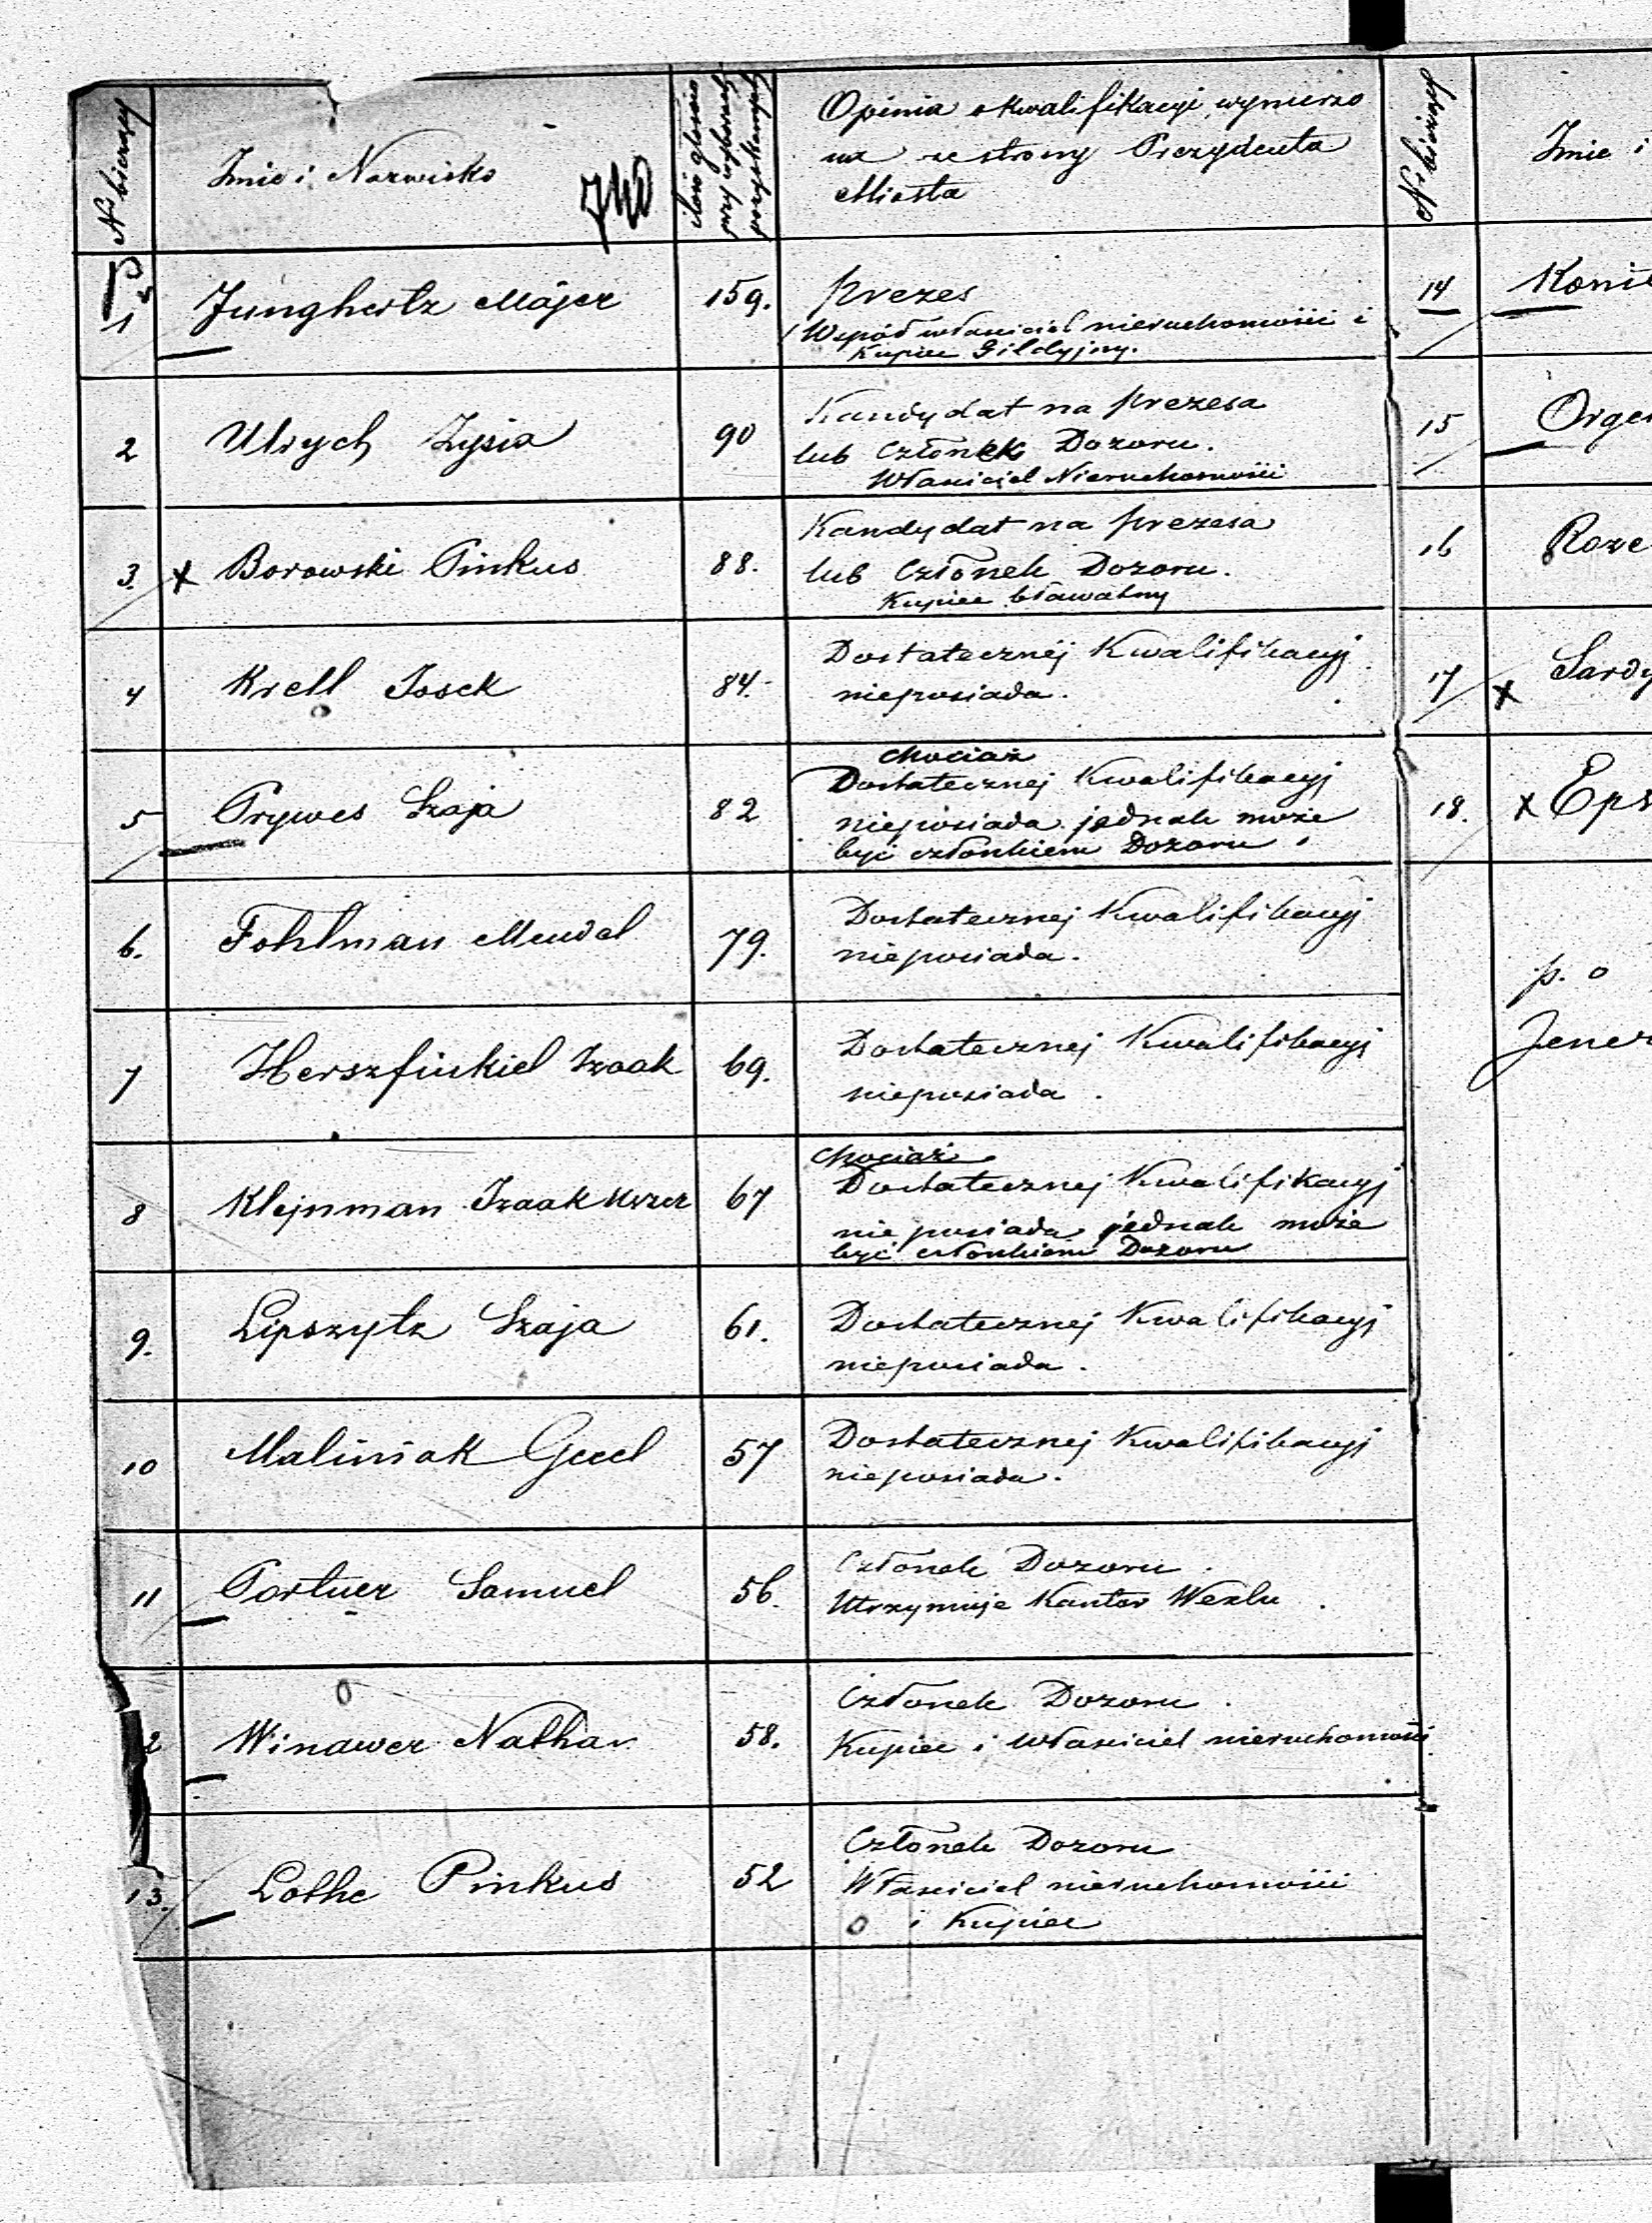 № bieżący
Imie i Nazwisko
740
ilość głosów
przy wyborach
pozyskanych
Opinia o kwalifikacyi wymierzo
na ze strony Prezydenta
Miasta
№ bieżący
Imie i
1
Junghertz Majer
159.
prezes
Współwłaściciel nieruchomości i
Kupiec Gildyjny.
2
Ulrych Zysia
90
Kandydat na prezesa
lub Członek Dozoru.
Właściciel Nieruchomości
3.
x Borowski Pinkus
88.
Kandydat na prezesa
lub Członek Dozoru.
Kupiec bławatny
4
Krell Josek
84.
Dostatecznéj Kwalifikacyj
nieposiada.
5
Prywes Szaja
82
chociaż
Dostatecznej Kwalifikacyj
nieposiada jednak może
być członkiem Dozoru.
6.
Fohlman Mendel
79.
Dostatecznej Kwalifikacyj
nieposiada.
7
Herszfinkiel Izaak
69.
Dostatecznej Kwalifikacyj
nieposiada.
8
Klejnman Izaak
67
chociaż
Dostatecznej Kwalifikacyj
nie posiada jednak może
być członkiem Dozoru
9.
Lipszytz Szaja
61.
Dostatecznej Kwalifikacyj
nieposiada.
10
Maliniak Gecel
57
Dostatecznej Kwalifikacyj
nieposiada.
11
Portner Samuel
56.
Członek Dozoru.
Utrzymuje Kantor Wexlu.
2
Winawer Nathan
58.
Członek Dozoru.
Kupiec i właściciel nieruchomości
13.
Lothe Pinkus
52
Członek Dozoru
Właściciel nieruchomości
i Kupiec
14
Koni
15
Orge
16
Roze
17
x Sardy
18.
x Eps
p. o
Jener